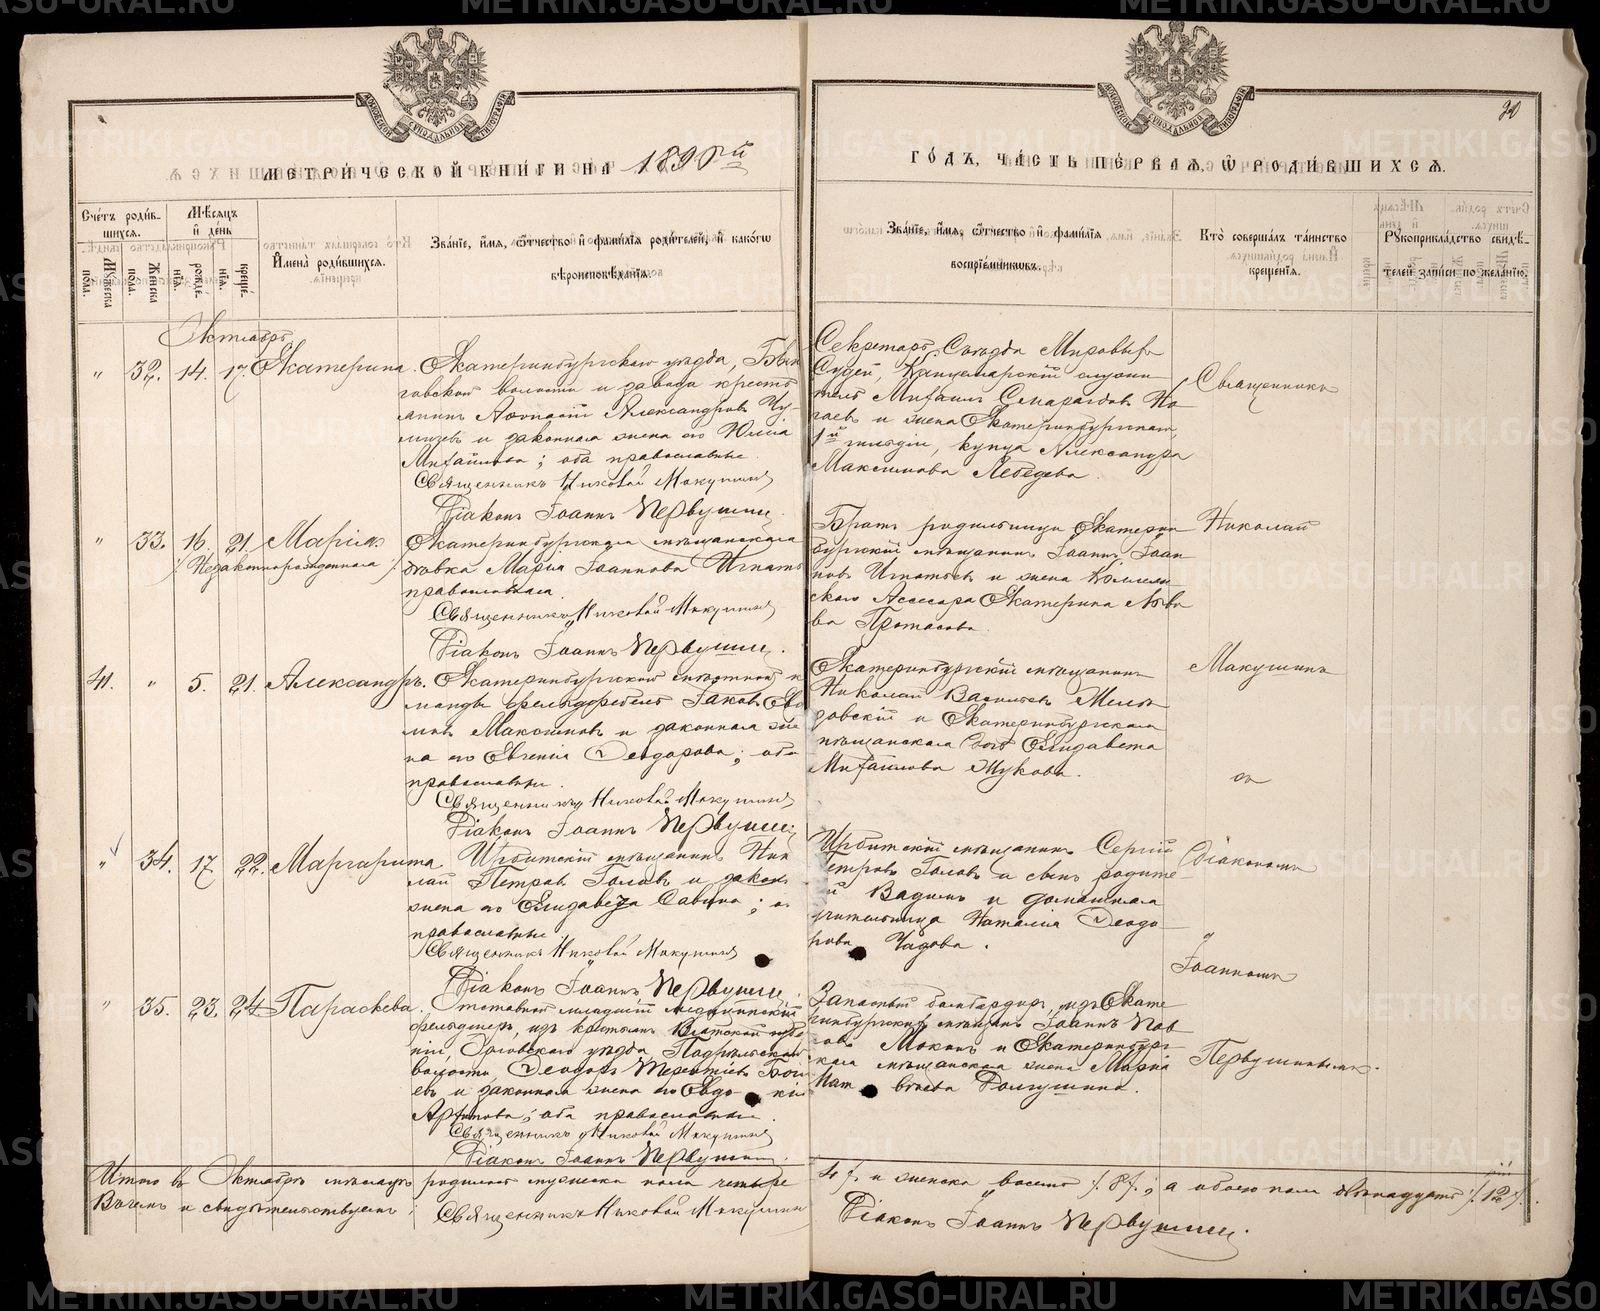 МЕТРИ́ЧЕСКОЙ КНИ́ГИ НА 1890й
ГО́ДЪ, ЧА́СТЬ ПЕ́РВАѦ, Ѡ РОДИ́ВШИХСѦ.
20
Сче́тъ роди́в-
шихся.
Му́жеска по́ла.
Же́нска по́ла.
Мѣ́сяцъ и́ де́нь
рожде́нїѧ.
креще́нїѧ.
И҆мена̀ роди́вшихся.
Зва́нїе, и҆́мѧ, ѻ҆́тчество и҆ фами́лїѧ роди́телей, и҆ како́гѡ
вѣроисповѣ́данїѧ.
Зва́нїе, и҆́мѧ, ѻ҆́тчество и҆ фами́лїѧ
воспрїе́мникѡвъ.
Кто̀ соверша́лъ та́инство
креще́нїѧ.
Рꙋкоприкла́дство свидѣ́-
телей за́писи по жела́нїю.
Октябрь
" 32. 14. 17. Екатерина.
Екатеринбургскаго уѣзда, Бын
говской волости и завода кресть
янинъ Александровъ
и законная жена его Юлія
Михайлова; оба православные.
Священникъ Николай Макушинъ
Діаконъ Іоаннъ Первушинъ.
Секретарь Съѣзда Мировыхъ
Судей, Канцелярскій служи
тель Михаилъ Смарагдовъ
и жена Екатеринбургскаго
1й гильдіи, купца Александра
Максимова Лебедева.
Священникъ
" 33. 16. 21. Марія
/Незаконнорожденная/
Екатеринбургская мѣщанская
дѣвка Марія Іоаннова Игнать
православная.
Священникъ Николай Макушинъ
Діаконъ Іоаннъ Первушинъ.
Братъ родильницы Екатерин
бургскій мѣщанинъ Іоаннъ Іоан
новъ Игнатьевъ и жена Коллеж
скаго Ассесора Екатерина Льво
ва Протасова.
Николай
41. " 5. 21. Александръ.
Екатеринбургской мѣстной ко
манды фельдфебель Іаковъ
Максимовъ и законная же
на его Евгенія Ѳеодорова; оба
православные.
Священникъ Николай Макушинъ
Діаконъ Іоаннъ Первушинъ
Екатеринбургскій мѣщанинъ
Николай Васильевъ
и Екатеринбургская
мѣщанская Елисавета
Михайлова Жукова.
Макушинъ
съ
" 34. 17 22. Маргарита
Ирбитскій мѣщанинъ Ник
лай Петровъ Головъ и закон
жена его Елизавета Саввина; о
православные.
Священникъ Николай Макушинъ
Діаконъ Іоаннъ Первушинъ
Ирбитскій мѣщанинъ Сергій
Петровъ Головъ и сынъ родите
й Вадимъ и домашняя
учительница Наталія Ѳеодо
рова Чадова.
Діакономъ
Іоанномъ
" 35. 23. 24. Параскева.
Отставной младшій медицинскій
фельдшеръ, изъ крестьянъ Вятской губер
ніи, Орловскаго уѣзда,
волости, Ѳеодоръ Терентіевъ
евъ и законная жена его Евдо кія
; оба православные.
Священникъ Николай Макушинъ
Діаконъ Іоаннъ Первушинъ.
Запасный бомбардиръ, изъ Екате
ринбургскихъ мѣщанъ Іоаннъ
и Екатеринбург
ская мѣщанская жена Марія
Долгушина.
Первушинымъ.
Итого въ Октябрѣ мѣсяцѣ родилось мужеска пола четыре
4/. и женска восемь /.8/.; а обоего пола двѣнадцать /.12/.
Въ чемъ и свидѣтельствуемъ:
Священникъ Николай Макушинъ
Діаконъ Іоаннъ Первушинъ.
METRIKI.GASO-URAL.RU